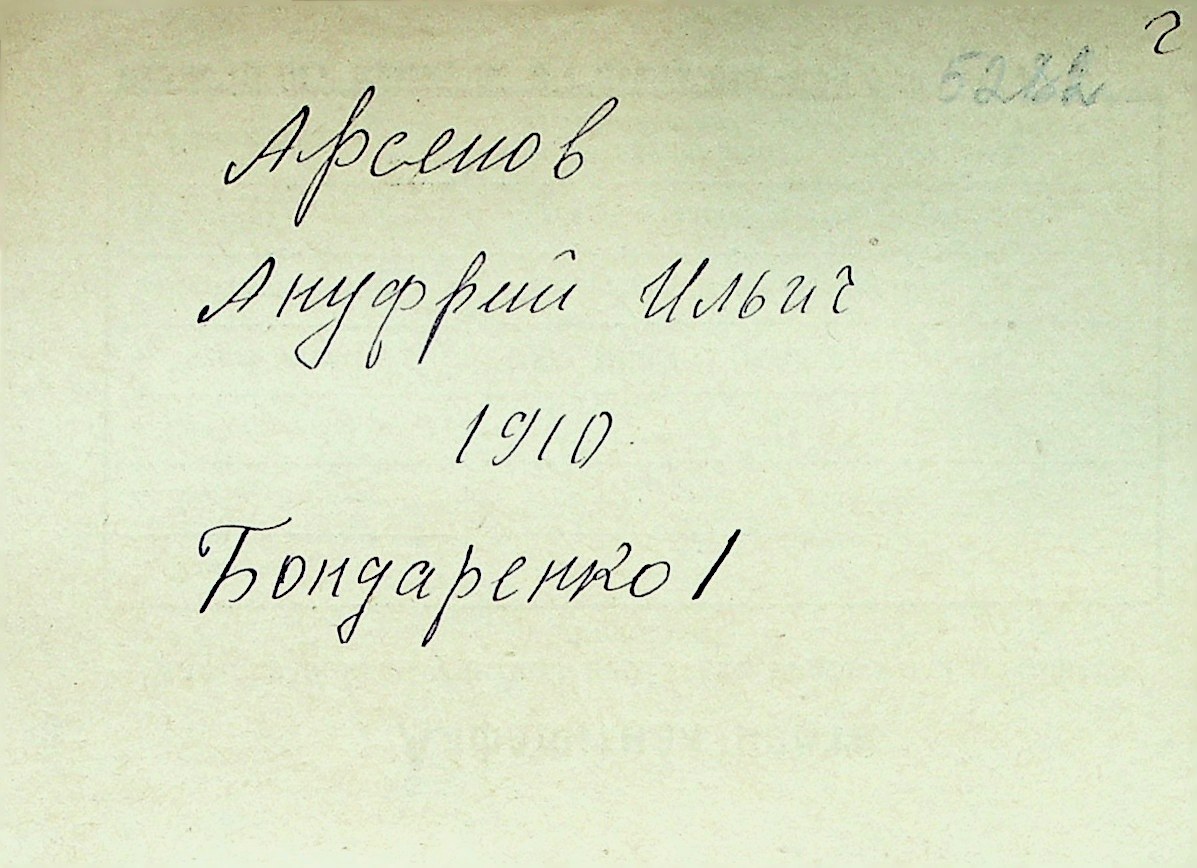 г
Арсенов
Ануфрий Ильич
1910
Бондаренко 1